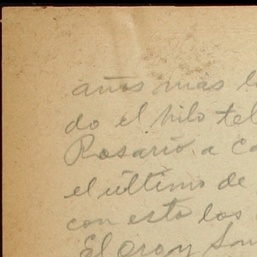 años mas l
do el hilo tel
Rosario a Co
el último de
con esto los
El oro y San